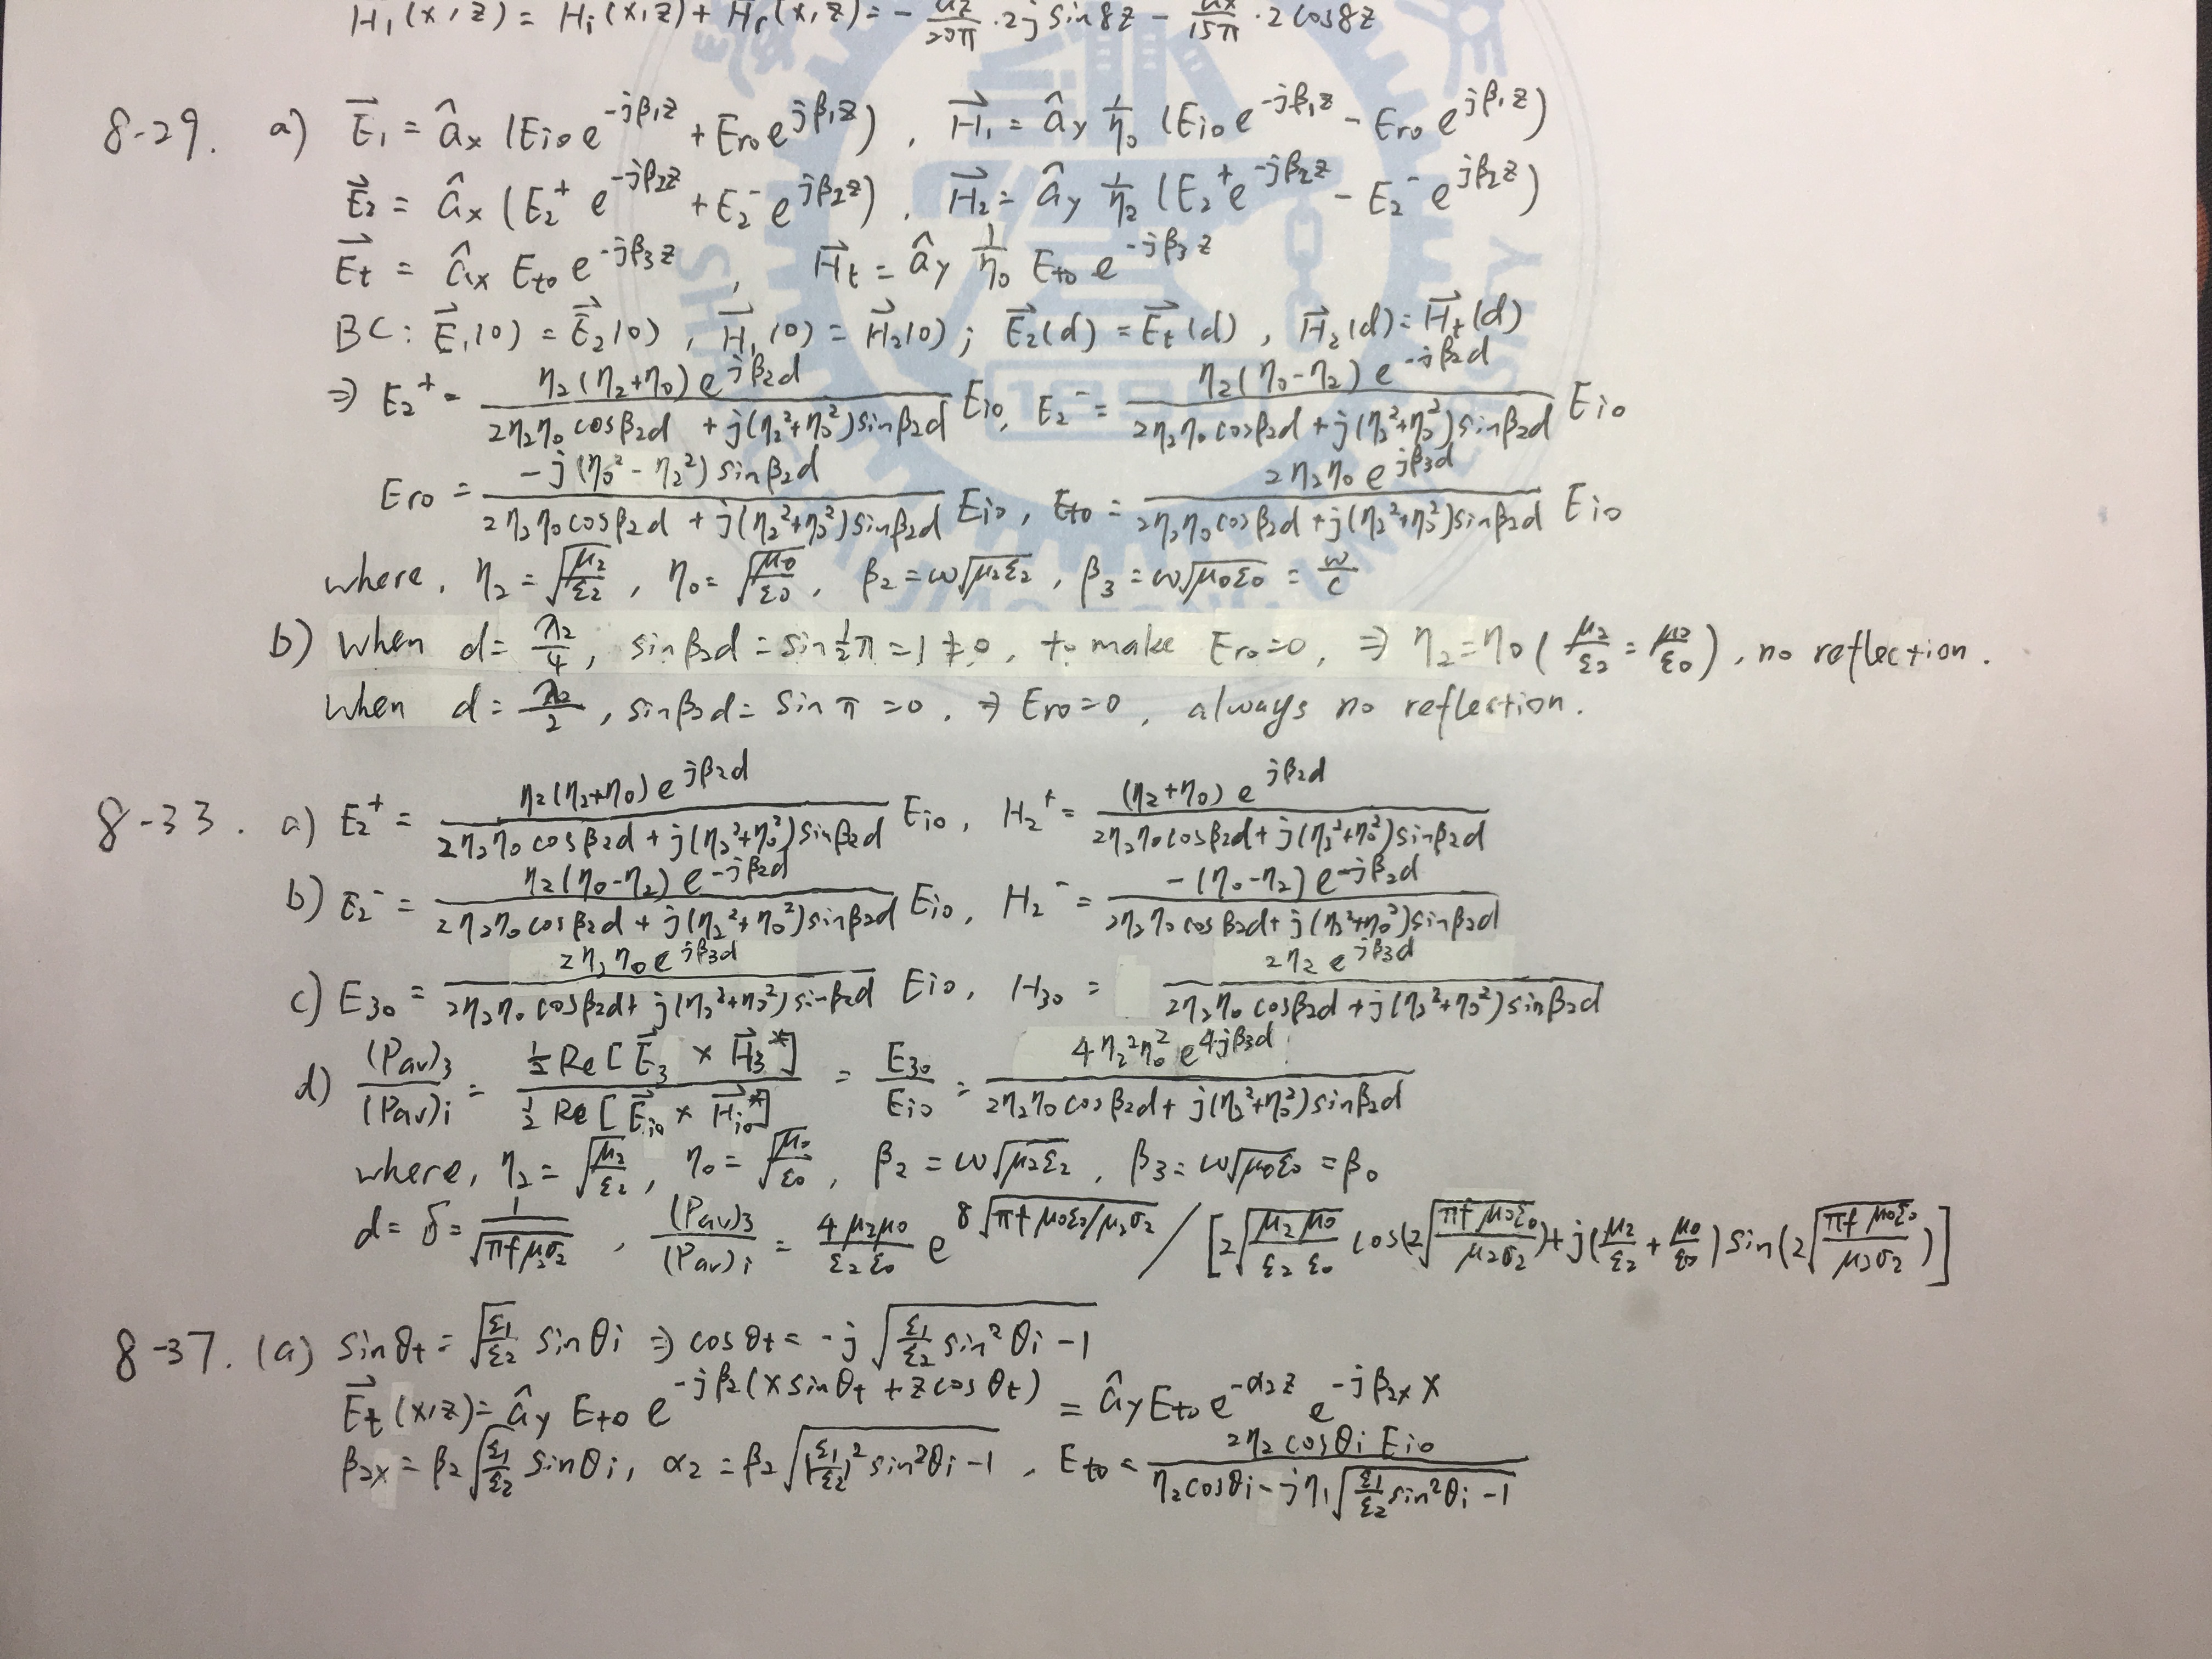 H₁(x,z) = Hᵢ(x,z) + Hᵣ(x,z) = - · 2j sin8z - · 2cos8z
8-29. a) E⃗₁ = âx (Ei0 e^{-jβ₁z} + Er0 e^{jβ₁z}), H⃗₁ = ây 1/η0 (Ei0 e^{-jβ₁z} - Er0 e^{jβ₁z})
E⃗₂ = âx (E₂⁺ e^{-jβ₂z} + E₂⁻ e^{jβ₂z}), H⃗₂ = ây 1/η₂ (E₂⁺ e^{-jβ₂z} - E₂⁻ e^{jβ₂z})
E⃗t = âx Et0 e^{-jβ₃z}, H⃗t = ây 1/η0 Et0 e^{-jβ₃z}
BC : E⃗₁(0) = E⃗₂(0), H⃗₁(0) = H⃗₂(0) ; E⃗₂(d) = E⃗t(d), H⃗₂(d) = H⃗t(d)
⇒ E₂⁺ = η₂(η₂+η0) e^{jβ₂d} / 2η₂η0 cosβ₂d + j(η₂²+η0²) sinβ₂d Ei0, E₂⁻ = η₂(η0-η₂) e^{-jβ₂d} / 2η₂η0 cosβ₂d + j(η₂²+η0²) sinβ₂d Ei0
Er0 = -j(η0²-η₂²) sinβ₂d / 2η₂η0 cosβ₂d + j(η₂²+η0²) sinβ₂d Ei0, Et0 = 2η₂η0 e^{jβ₃d} / 2η₂η0 cosβ₂d + j(η₂²+η0²) sinβ₂d Ei0
where, η₂ = √(μ₂/ε₂), η0 = √(μ0/ε0), β₂ = ω√(μ₂ε₂), β₃ = ω√(μ0ε0) = ω/c
b) when d = λ₂/4, sinβ₂d = sin½π = 1 ≠ 0, to make Er0 = 0, ⇒ η₂ = η0 (μ₂/ε₂ = μ0/ε0), no reflection.
when d = λ₂/2, sinβ₂d = sinπ = 0, ⇒ Er0 = 0, always no reflection.
8-33. a) E₂⁺ = η₂(η₂+η0) e^{jβ₂d} / 2η₂η0 cosβ₂d + j(η₂²+η0²) sinβ₂d Ei0, H₂⁺ = (η₂+η0) e^{jβ₂d} / 2η₂η0 cosβ₂d + j(η₂²+η0²) sinβ₂d
b) E₂⁻ = η₂(η0-η₂) e^{-jβ₂d} / 2η₂η0 cosβ₂d + j(η₂²+η0²) sinβ₂d Ei0, H₂⁻ = -(η0-η₂) e^{-jβ₂d} / 2η₂η0 cosβ₂d + j(η₂²+η0²) sinβ₂d
c) E30 = 2η₂η0 e^{jβ₃d} / 2η₂η0 cosβ₂d + j(η₂²+η0²) sinβ₂d Ei0, H30 = 2η₂ e^{jβ₃d} / 2η₂η0 cosβ₂d + j(η₂²+η0²) sinβ₂d
d) (Pav)₃/(Pav)i = ½Re[E⃗₃ × H⃗₃*] / ½Re[E⃗i0 × H⃗i0*] = E30/Ei0 = 4η₂²η0² e^{4jβ₃d} / 2η₂η0 cosβ₂d + j(η₂²+η0²) sinβ₂d
where, η₂ = √(μ₂/ε₂), η0 = √(μ0/ε0), β₂ = ω√(μ₂ε₂), β₃ = ω√(μ0ε0) = β0
d = δ = 1/√(πfμ₂σ₂), (Pav)₃/(Pav)i = 4μ₂μ0/ε₂ε0 e^{8√(πfμ0ε0/μ₂σ₂)} / [2√(μ₂μ0/ε₂ε0) cos(2√(πfμ0ε0/μ₂σ₂)) + j(μ₂/ε₂ + μ0/ε0) sin(2√(πfμ0ε0/μ₂σ₂))]
8-37. (a) sinθt = √(ε₁/ε₂) sinθi ⇒ cosθt = -j√(ε₁/ε₂ sin²θi - 1)
E⃗t(x,z) = ây Et0 e^{-jβ₂(x sinθt + z cosθt)} = ây Et0 e^{-α₂z} e^{-jβ₂x x}
β₂x = β₂√(ε₁/ε₂) sinθi, α₂ = β₂√((ε₁/ε₂)² sin²θi - 1), Et0 = 2η₂ cosθi Ei0 / η₂cosθi - jη₁√(ε₁/ε₂ sin²θi - 1)